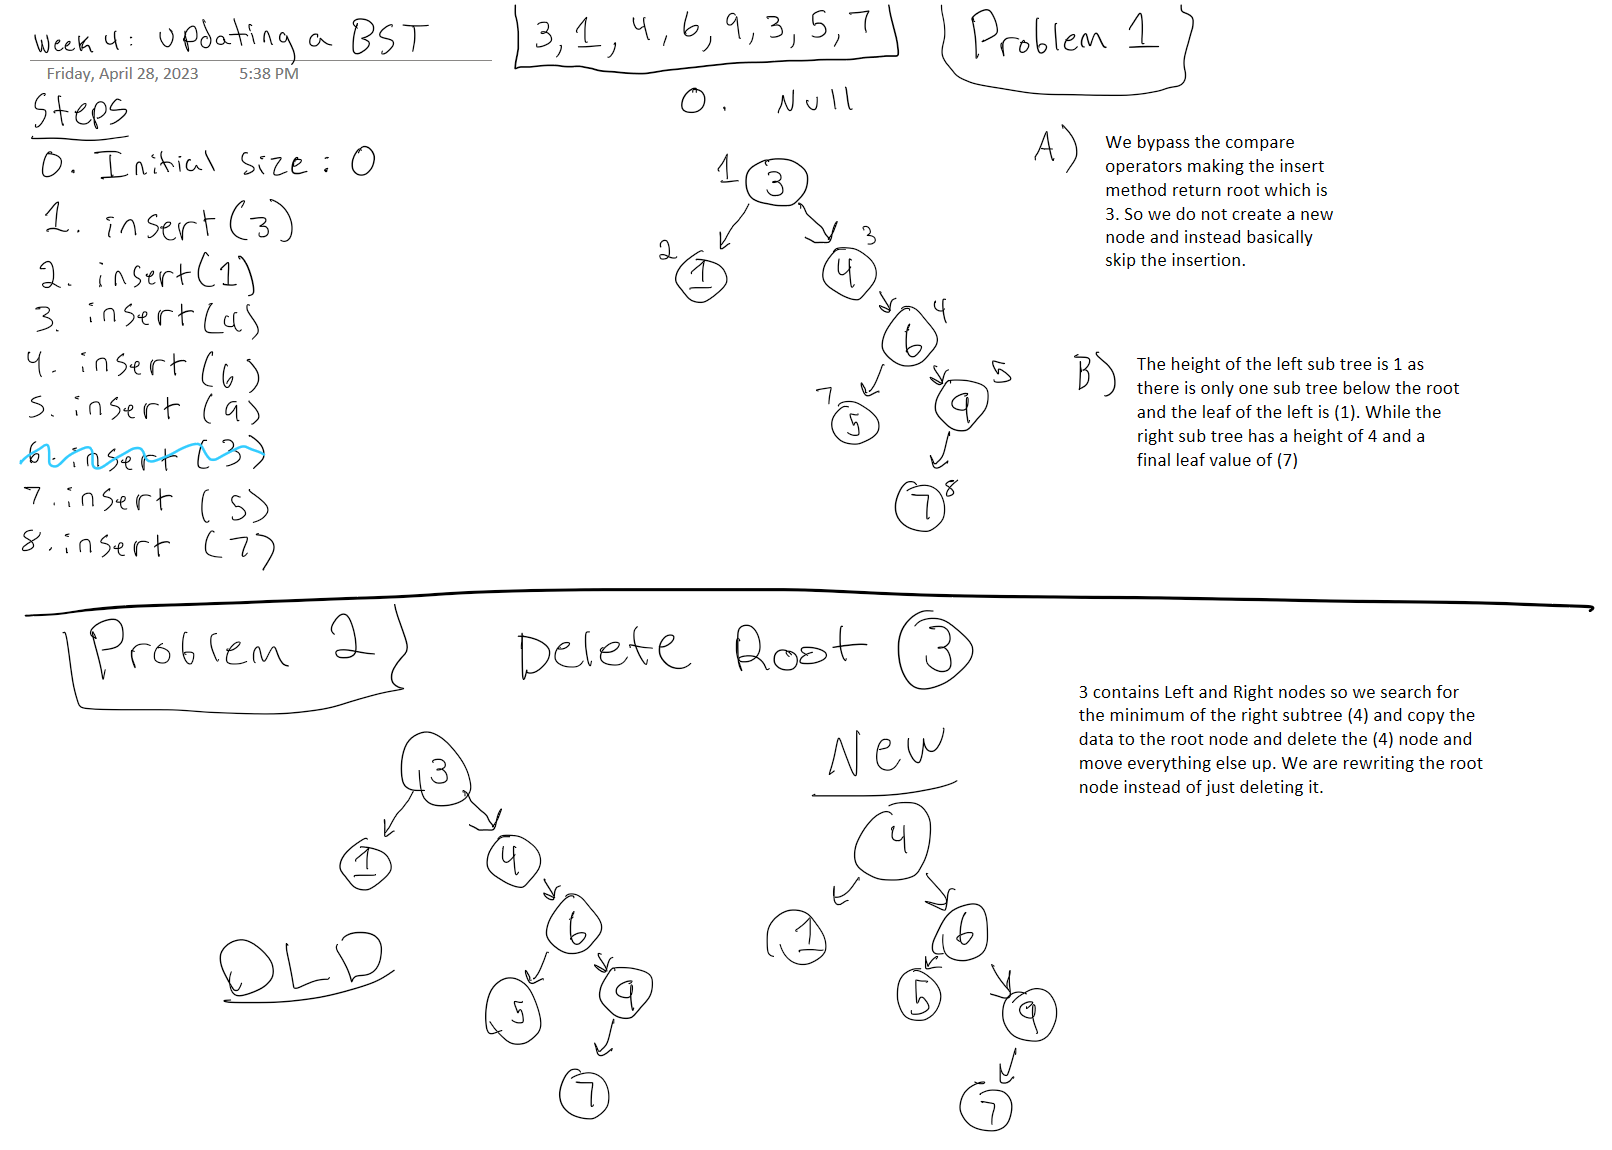 Week 4: Updating a BST
Friday, April 28, 2023 5:38 PM
3, 1, 4, 6, 9, 3, 5, 7
Problem 1
Steps
0. Initial size: 0
1. insert(3)
2. insert(1)
3. insert(4)
4. insert(6)
5. insert(9)
6. insert(3)
7. insert(5)
8. insert(7)
0. Null
1 3
2 1
4 3
6 4
7 5
9 5
7 8
A)
We bypass the compare
operators making the insert
method return root which is
3. So we do not create a new
node and instead basically
skip the insertion.
B)
The height of the left sub tree is 1 as
there is only one sub tree below the root
and the leaf of the left is (1). While the
right sub tree has a height of 4 and a
final leaf value of (7)
Problem 2
Delete Root 3
OLD
3
1
4
6
5
9
7
New
4
1
6
5
9
7
3 contains Left and Right nodes so we search for
the minimum of the right subtree (4) and copy the
data to the root node and delete the (4) node and
move everything else up. We are rewriting the root
node instead of just deleting it.